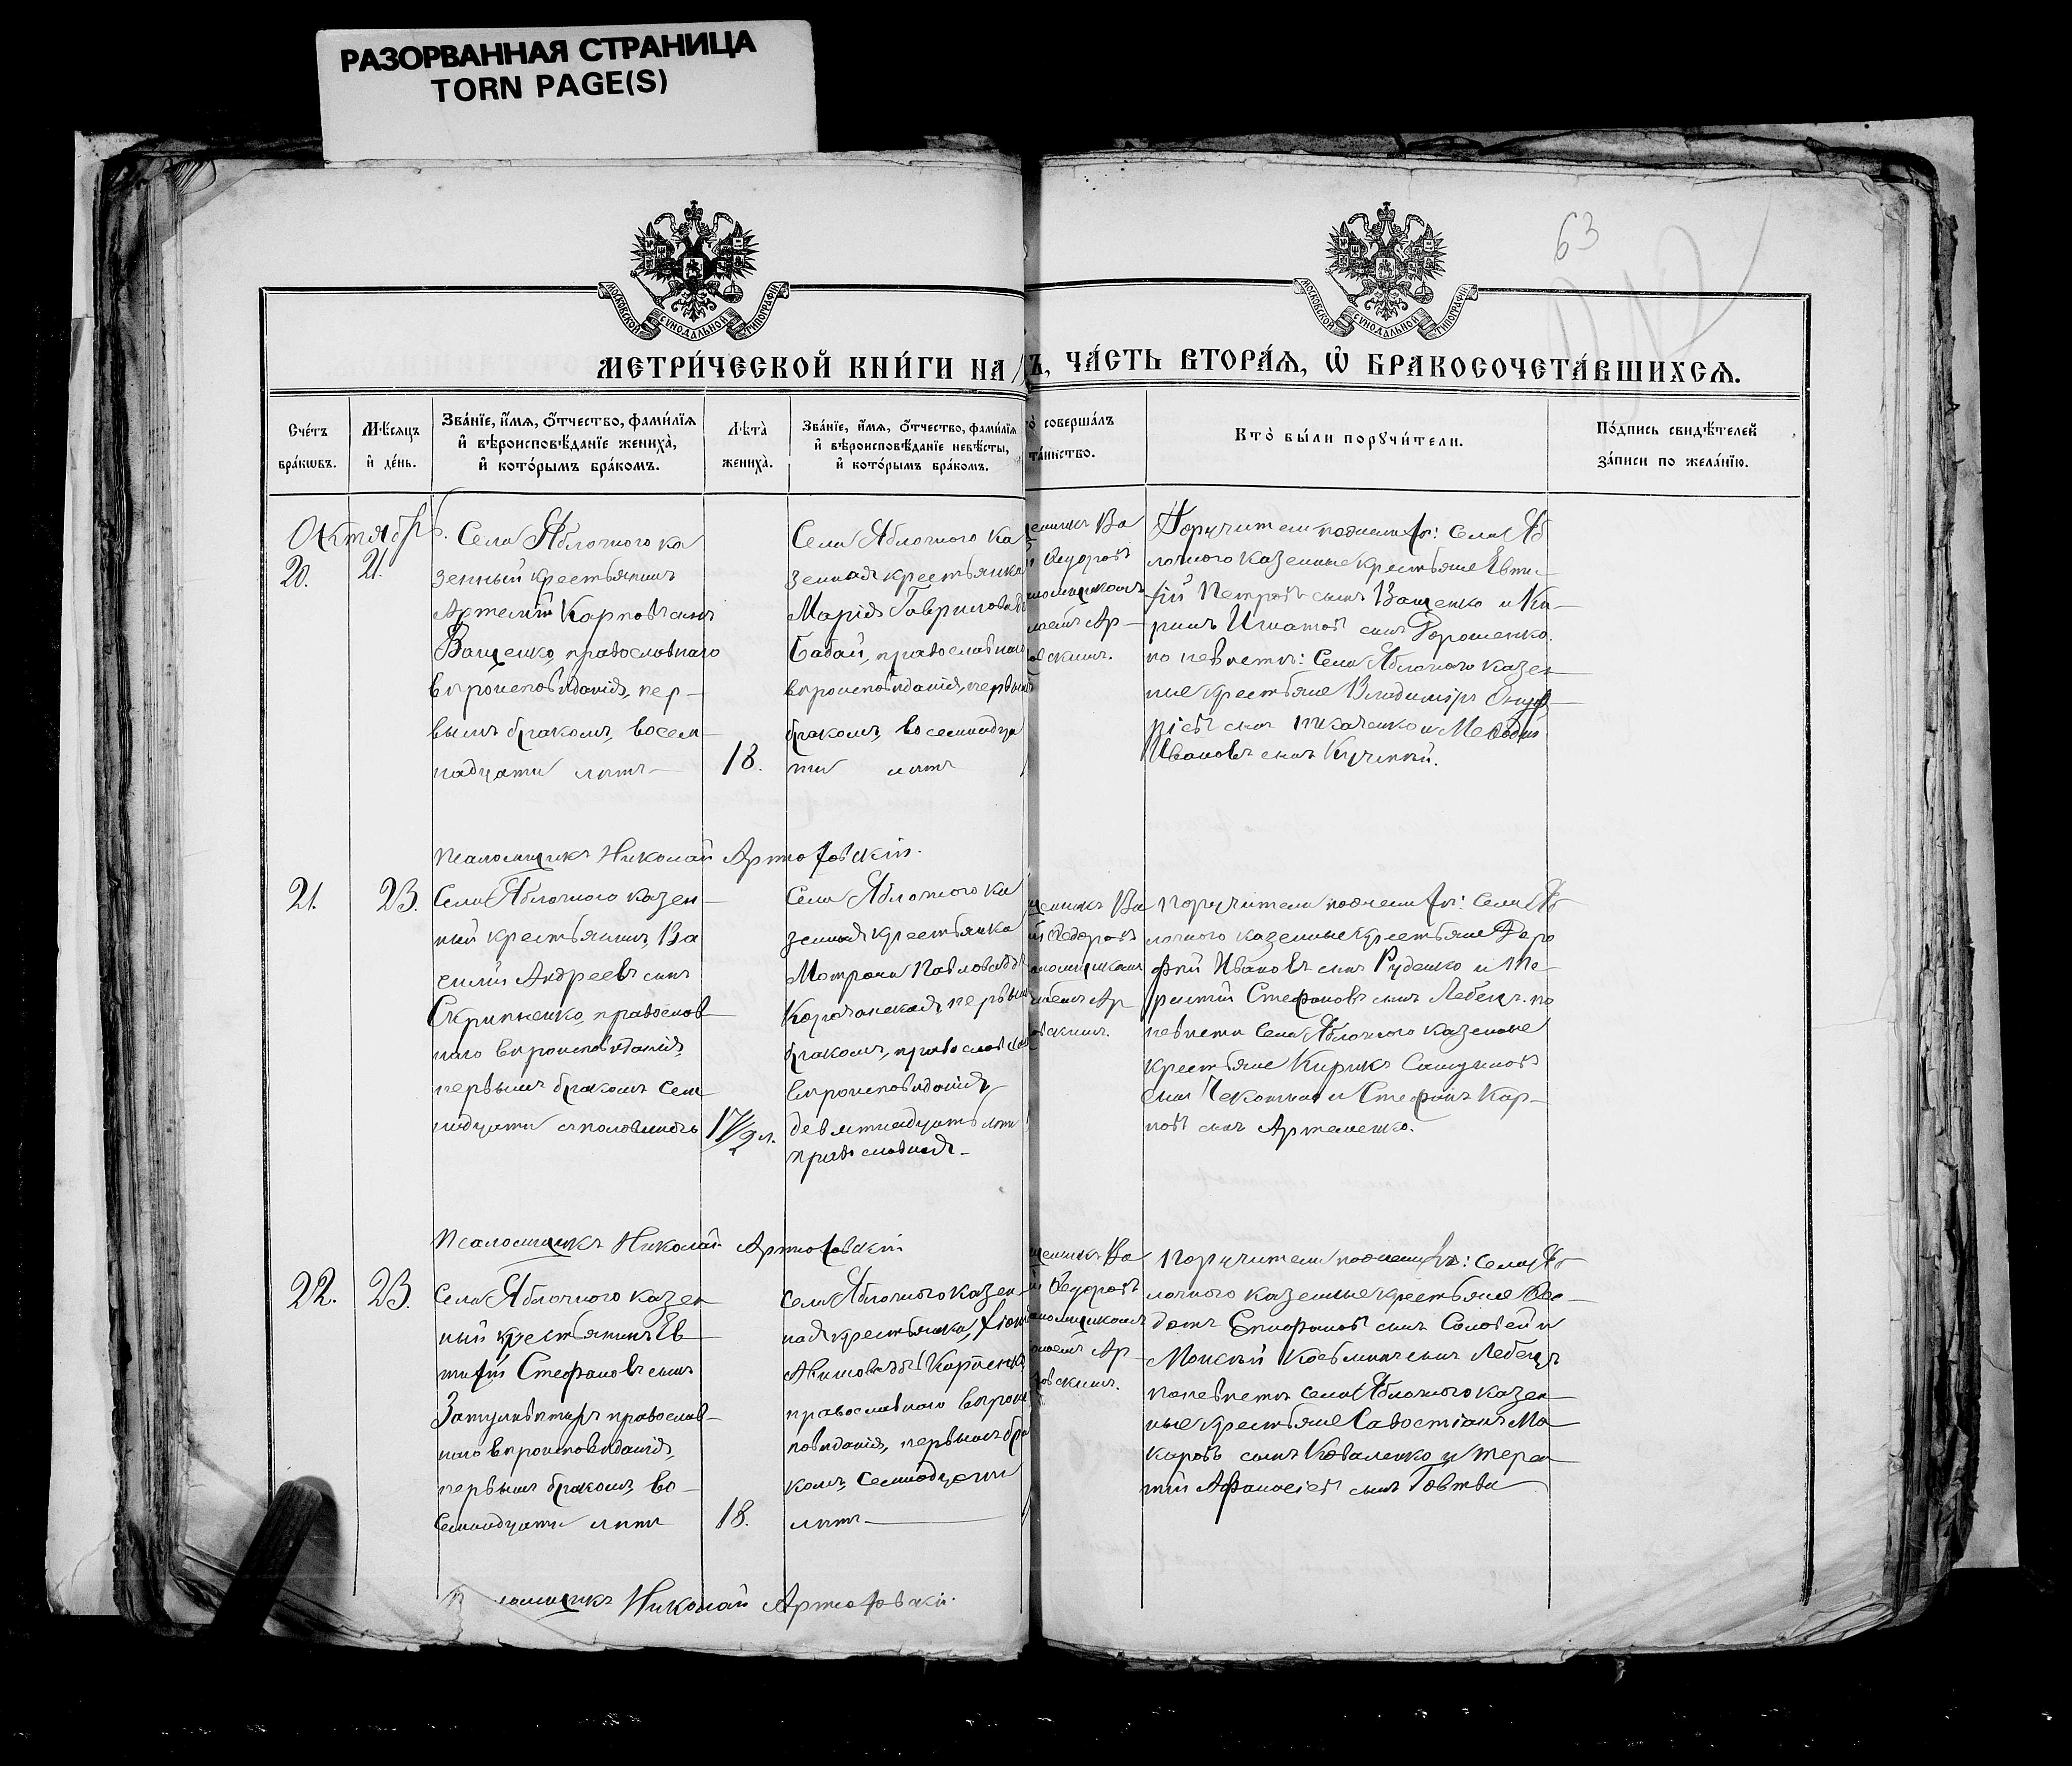 РАЗОРВАННАЯ СТРАНИЦА
TORN PAGE(S)
63
МОСКОВСКОЙ СѴНОДАЛЬНОЙ ТИПОГРАФІИ
МОСКОВСКОЙ СѴНОДАЛЬНОЙ ТИПОГРАФІИ
МЕТРИ́ЧЕСКОЙ КНИ́ГИ НА
Ъ, ЧА́СТЬ ВТОРА́Ѧ, Ѽ БРАКОСОЧЕТА́ВШИХСѦ.
Сче́тъ
бра́кѡвъ.
Мѣ́сяцъ
и҆ де́нь.
Зва́нїе, и҆́мѧ, ѻ҆́тчество, фами́лїѧ
и҆ вѣроисповѣ́данїе жениха̀,
и҆ кото́рымъ бра́комъ.
Лѣта̀
жениха̀.
Зва́нїе, и҆́мѧ, ѻ҆́тчество, фами́лїѧ
и҆ вѣроисповѣ́данїе невѣ́сты,
и҆ кото́рымъ бра́комъ.
о̀ соверша́лъ
та́инство.
Кто̀ бы́ли порꙋчи́тели.
По́дпись свидѣ́телей
за́писи по жела́нїю.
Октябрь.
20.
21.
Села Яблочного ка
зенный крестьянинъ
Артемій Карповъ сынъ
Ващенко, православнаго
вѣроисповѣданія, пер-
вымъ бракомъ, восем-
надцати лѣтъ-
18.
Села Яблочного ка
зенная крестьянка
Марія Гаврилова
Бабай, православнаго
вѣроисповѣданія, первымъ
бракомъ, восемнадца
ти лѣтъ
Ва
Ѳедоровъ
Ар-
овскимъ.
Поручители по женихѣ: Села Яб
лочного казенные крестьяне Евти-
хій Петровъ сынъ Ващенко и Ки-
рилъ Игнатовъ сынъ Дорошенко.
по невѣстѣ: Села Яблочного казен
ные крестьяне Владиміръ Онуф-
ріевъ сынъ Ткаченко и Меѳодій
Ивановъ сынъ Кучинъ.
Псаломщикъ Николай Артюховскій.
21.
23.
Села Яблочного казен-
ный крестьянинъ Ва
силій Андреевъ сынъ
Скрипненко, православ-
наго вѣроисповѣданія,
первымъ бракомъ сем
надцати съ половиною
17 1/2 л.
Села Яблочного ка
зенная крестьянка
Матрона Павлова
первымъ
бракомъ, православнаго
вѣроисповѣданія
девятнадцать лѣтъ
православная-
щенникъ Ва
Ѳедоровъ
Ар
овскимъ.
Поручители по женихѣ: Села Яб
лочного казенные крестьяне Доро
фей Ивановъ сынъ Руденко и Те-
рентій Стефановъ сынъ Лебедь. по
невѣстѣ Села Яблочного казенные
крестьяне Кирикъ
сынъ и Стефанъ Кар-
повъ сынъ Артеменко.
Псаломщикъ Николай Артюховскій
22.
23.
Села Яблочного казен
ный крестьянинъ Ев
тихій Стефановъ сынъ
православ-
наго вѣроисповѣданія,
первымъ бракомъ, во-
семнадцати лѣтъ
18.
Села Яблочного казен
ная крестьянка,
Карпенко
православнаго вѣроис
повѣданія, первымъ бра
комъ, Семнадцати
лѣтъ
щенникъ Ва
Ѳедоровъ
Ар-
овскимъ.
Поручители по женихѣ: Села Яб
лочного казенные крестьяне Ѳео-
дотъ Епифановъ сынъ Соловей и
Моисей Косьминъ сынъ Лебедь
по невѣстѣ села Яблочного казен
ные крестьяне Савостіанъ Ма
каровъ сынъ Коваленко и Терен
тій Афанасіевъ сынъ Говтва
Николай Артюховскій.